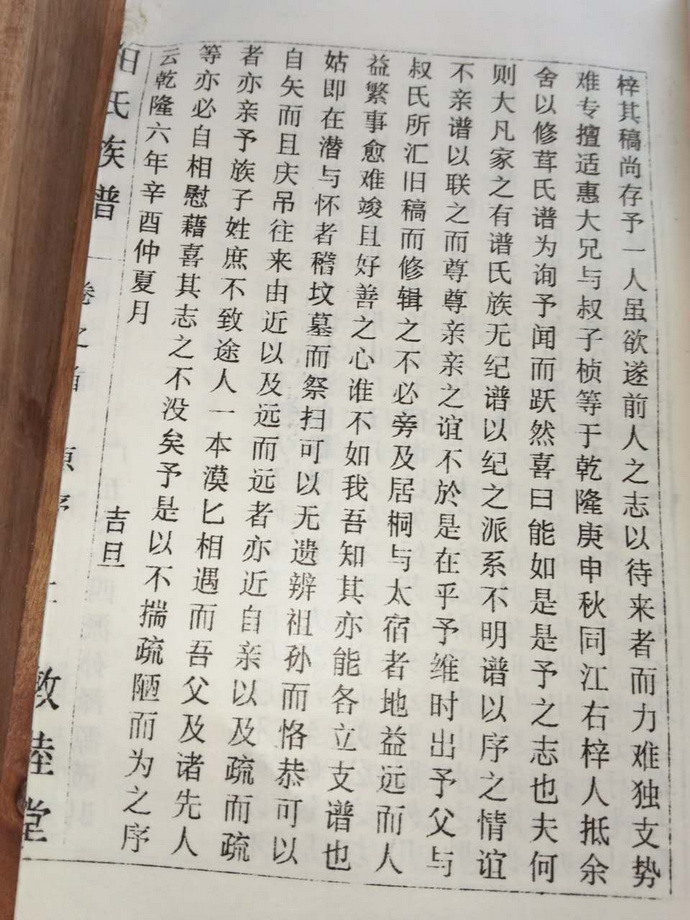 梓其稿尚存予一人虽欲遂前人之志以待来者而力难独支势
难专擅适惠大兄与叔子桢等于乾隆庚申秋同江右梓人抵余
舍以修葺氏谱为询予闻而跃然喜曰能如是是予之志也夫何
则大凡家之有谱氏族无纪谱以纪之派系不明谱以序之情谊
不亲谱以联之而尊尊亲亲之谊不於是在乎予维时出予父与
叔氏所汇旧稿而修辑之不必旁及居桐与太宿者地益远而人
益繁事愈难竣且好善之心谁不如我吾知其亦能各立支谱也
姑即在潜与怀者稽坟墓而祭扫可以无遗辨祖孙而恪恭可以
自矢而且庆吊往来由近以及远而远者亦近自亲以及疏而疏
者亦亲予族子姓庶不致途人一本漠匕相遇而吾父及诸先人
等亦必自相慰藉喜其志之不没矣予是以不揣疏陋而为之序
云乾隆六年辛酉仲夏月
吉旦
氏族谱
卷之首
原序
敦睦堂